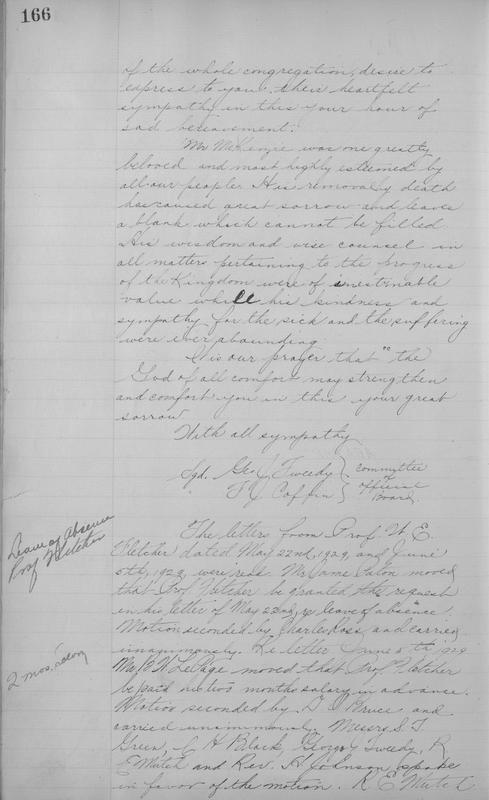 166
of the whole congregation, desire to
express to you, their heartfelt
sympathy in this your hour of
sad bereavement.
Mr McKenzie was one greatly
beloved and most highly esteemed by
all our people. His removal by death
has caused great sorrow and leaves
a blank which cannot be filled
His wisdom and wise counsel in
all matters pertaining to the progress
of the Kingdom were of inestimable
value while his kindness and
sympathy for the sick and the suffering
were ever abounding
It is our prayer that "the
God of all comfort may strengthen
and comfort you in this your great
sorrow
With all sympathy
Sgd. Geo J Tweedy committee of
F J Coffin official Board.
Leave of Absence
Prof Fletcher
The letters from Prof. W. E.
Fletcher dated May 22nd, 1929, and June
5th, 1929, were read. Mr Jame Paton moved
that Prof Fletcher be granted the request
in his letter of May 22nd, leave of absence.
Motion seconded by Charles Ross, and carried
unanimously. Re letter June 5th 1929
Mr P. W. LePage moved that Prof. Fletcher
be paid two months salary in advance.
2 mos. salary
Motion seconded by D Bruce and
carried unanimously. Messrs S. F.
Green, C H Black, George J Tweedy, R
E Mutch and Rev. H. Johnson, spoke
in favor of the motion. R E Mutch